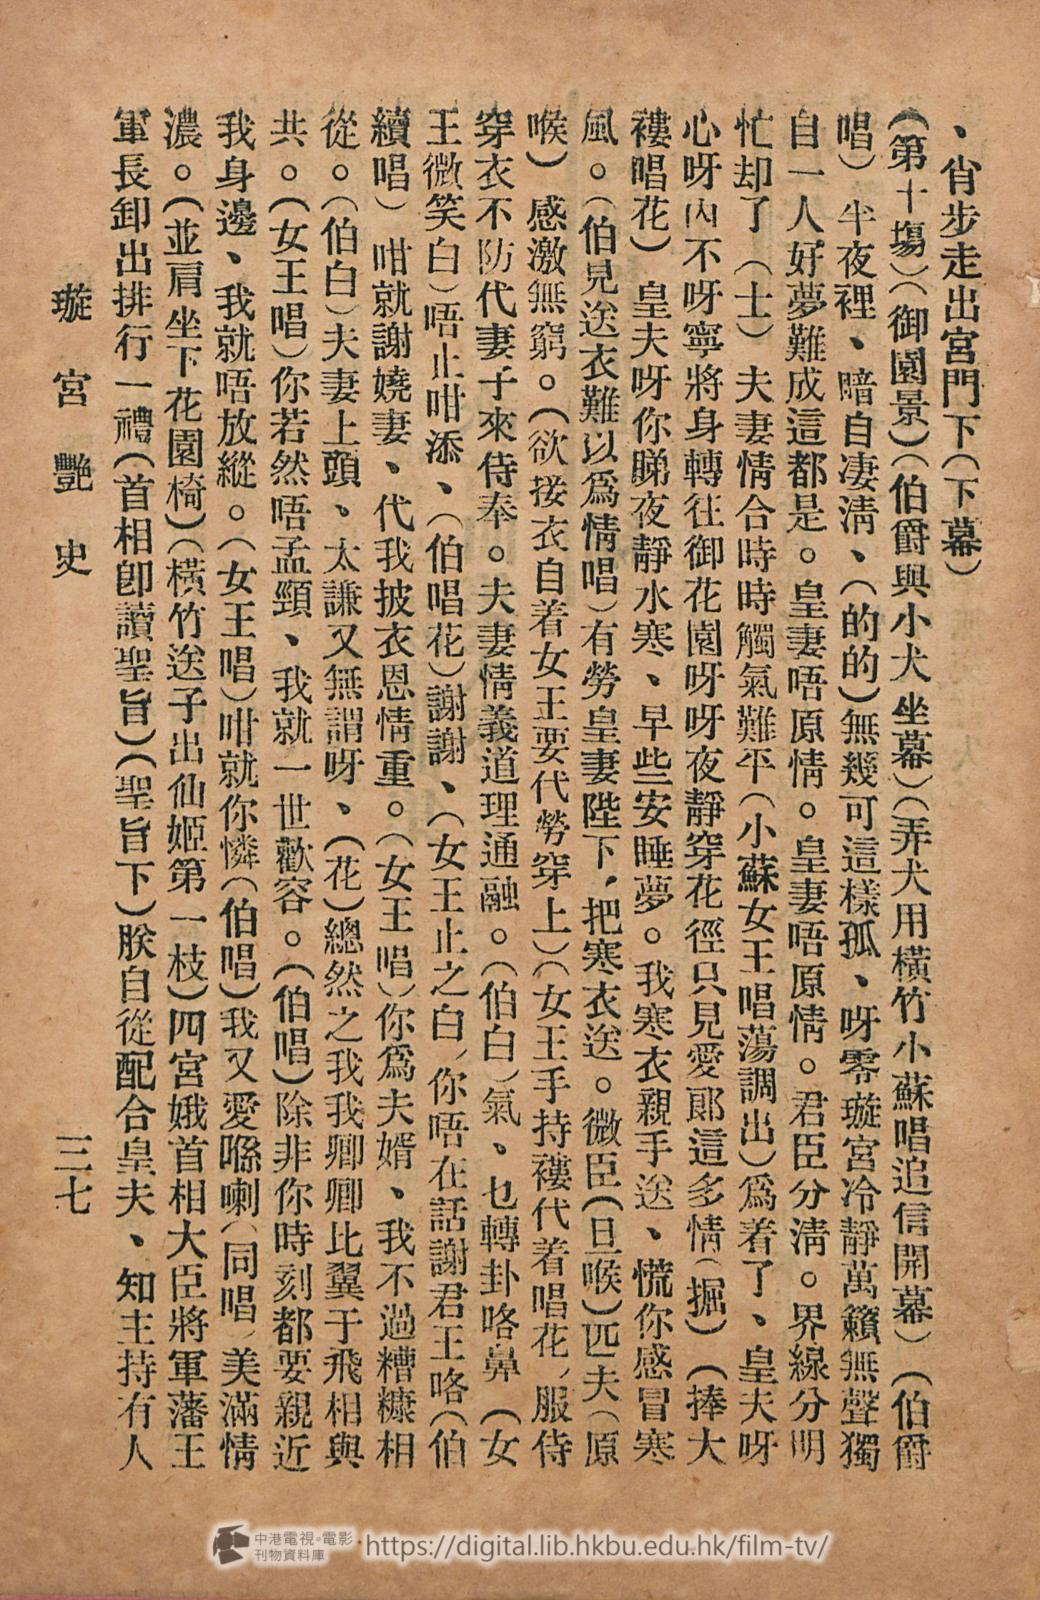 、肯步走出宮門下（下幕）
（第十塲）（御園景）（伯爵與小犬坐幕）（弄犬用橫竹小蘇唱追信開幕）（伯爵
唱）半夜裡、暗自凄淸、（的的）無幾可這樣孤、呀零璇宮冷靜萬籟無聲獨
自一人好夢難成這都是。皇妻唔原情。皇妻唔原情。君臣分淸。界線分明
忙却了（士）夫妻情合時時觸氣難平（小蘇女王唱蕩調出）爲着了、皇夫呀
心呀內不呀寧將身轉往御花園呀呀夜靜穿花徑只見愛郎這多情（掘）（捧大
褸唱花）皇夫呀你睇夜靜水寒、早些安睡夢。我寒衣親手送、慌你感冒寒
風。（伯見送衣難以爲情唱）有勞皇妻陛下，把寒衣送。微臣（旦喉）匹夫（原
喉）感激無窮。（欲接衣自着女王要代勞穿上）（女王手持褸代着唱花，服侍
穿衣不防代妻子來侍奉。夫妻情義道理通融。（伯白）氣、乜轉卦咯鼻（女
王微笑白）唔止咁添、（伯唱花）謝謝、（女王止之白，你唔在話謝君王咯（伯
續唱）咁就謝嬈妻、代我披衣恩情重。（女王唱）你爲夫婿、我不過糟糠相
從。（伯白）夫妻上頭、太謙又無謂呀、（花）總然之我我卿卿比翼于飛相與
共。（女王唱）你若然唔孟頸、我就一世歡容。（伯唱）除非你時刻都要親近
我身邊、我就唔放縱。（女王唱）咁就你憐（伯唱）我又愛喺喇（同唱，美滿情
濃。（並肩坐下花園椅）（橫竹送子出仙姬第一枝）四宮娥首相大臣將軍藩王
軍長卸出排行一禮（首相卽讀聖旨）（聖旨下）朕自從配合皇夫、知主持有人
璇宮艷史
三七
中港電視·電影
刊物資料庫
https://digital.lib.hkbu.edu.hk/film-tv/